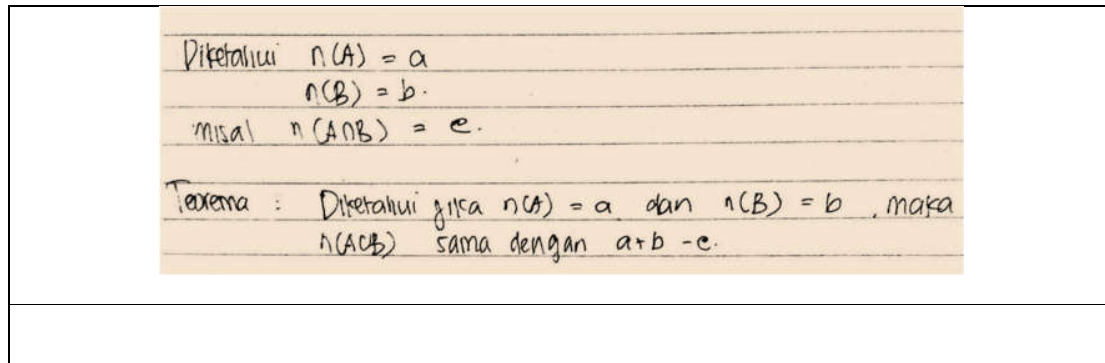 Diketahui n(A) = a
n(B) = b.
misal n(A∩B) = e.
Teorema : Diketahui jika n(A) = a dan n(B) = b, maka
n(A∪B) sama dengan a+b -e.